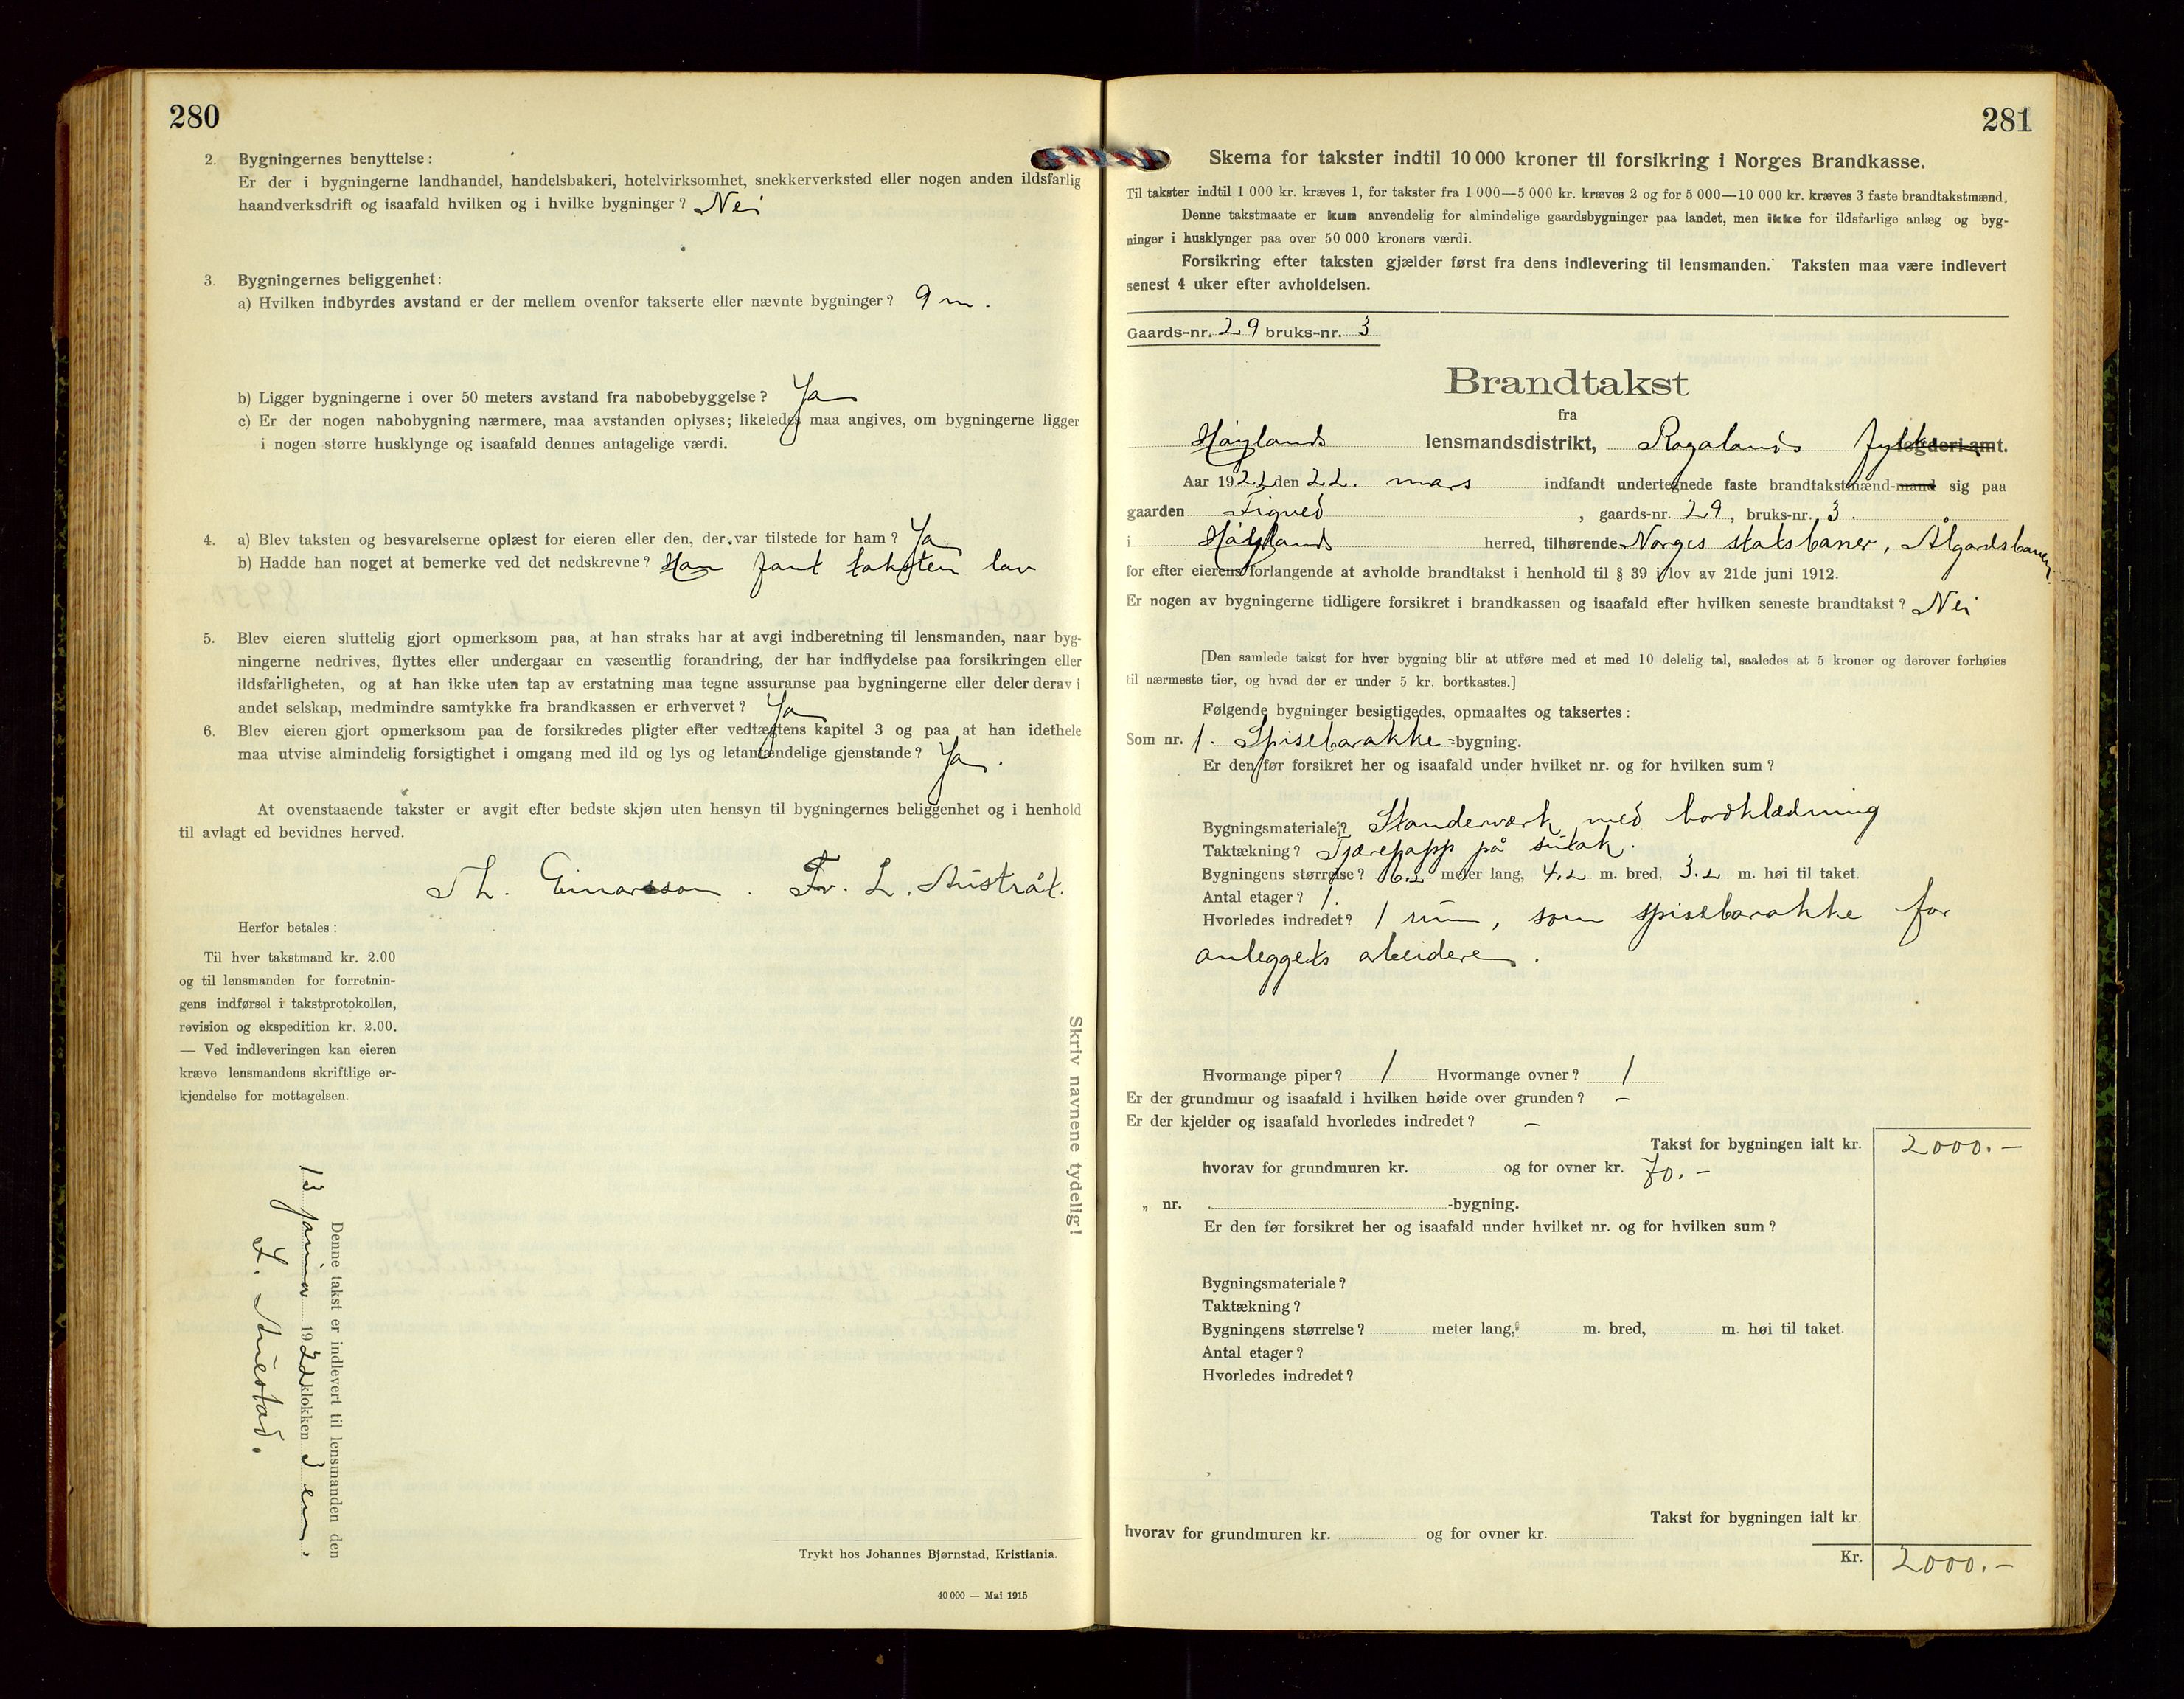 280
2. Bygningernes benyttelse:
Er der i bygningerne landhandel, handelsbakeri, hotelvirksomhet, snekkerverksted eller nogen anden ildsfarlig
haandverksdrift og isaafald hvilken og i hvilke bygninger? Nei
3. Bygningernes beliggenhet:
a) Hvilken indbyrdes avstand er der mellem ovenfor takserte eller nævnte bygninger? 9 m.
b) Ligger bygningerne i over 50 meters avstand fra nabobebyggelse? Ja
c) Er der nogen nabobygning nærmere, maa avstanden oplyses; likeledes maa angives, om bygningerne ligger
i nogen større husklynge og isaafald dennes antagelige værdi.
4. a) Blev taksten og besvarelserne oplæst for eieren eller den, der var tilstede for ham? Ja
b) Hadde han noget at bemerke ved det nedskrevne? Han fant taksten lav
5. Blev eieren sluttelig gjort opmerksom paa, at han straks har at avgi indberetning til lensmanden, naar byg-
ningerne nedrives, flyttes eller undergaar en væsentlig forandring, der har indflydelse paa forsikringen eller
ildsfarligheten, og at han ikke uten tap av erstatning maa tegne assuranse paa bygningerne eller deler derav i
andet selskap, medmindre samtykke fra brandkassen er erhvervet? Ja
6. Blev eieren gjort opmerksom paa de forsikredes pligter efter vedtægtens kapitel 3 og paa at han idethele
maa utvise almindelig forsigtighet i omgang med ild og lys og letantændelige gjenstande? Ja.
At ovenstaaende takster er avgit efter bedste skjøn uten hensyn til bygningernes beliggenhet og i henhold
til avlagt ed bevidnes herved.
Th. Einarsson. Fr. L. Austråt.
Herfor betales:
Til hver takstmand kr. 2.00
og til lensmanden for forretnin-
gens indførsel i takstprotokollen,
revision og ekspedition kr. 2.00.
— Ved indleveringen kan eieren
kræve lensmandens skriftlige er-
kjendelse for mottagelsen.
Skriv navnene tydelig!
Denne takst er indlevert til lensmanden den
13 januar 1922 klokken 3 em.
Trykt hos Johannes Bjørnstad, Kristiania.
40 000 — Mai 1915
281
Skema for takster indtil 10 000 kroner til forsikring i Norges Brandkasse.
Til takster indtil 1 000 kr. kræves 1, for takster fra 1 000—5 000 kr. kræves 2 og for 5 000—10 000 kr. kræves 3 faste brandtakstmænd.
Denne takstmaate er kun anvendelig for almindelige gaardsbygninger paa landet, men ikke for ildsfarlige anlæg og byg-
ninger i husklynger paa over 50 000 kroners værdi.
Forsikring efter taksten gjælder først fra dens indlevering til lensmanden. Taksten maa være indlevert
senest 4 uker efter avholdelsen.
Gaards-nr. 29 bruks-nr. 3
Brandtakst
fra
Høylands lensmandsdistrikt, Rogalands fylke
Aar 1922 den 22. mars indfandt undertegnede faste brandtakstmænd-mand sig paa
gaarden Figved, gaards-nr. 29, bruks-nr. 3.
i Høylands herred, tilhørende Norges statsbaner, Ålgårdsbanen
for efter eierens forlangende at avholde brandtakst i henhold til § 39 i lov av 21de juni 1912.
Er nogen av bygningerne tidligere forsikret i brandkassen og isaafald efter hvilken seneste brandtakst? Nei
[Den samlede takst for hver bygning blir at utføre med et med 10 delelig tal, saaledes at 5 kroner og derover forhøies
til nærmeste tier, og hvad der er under 5 kr. bortkastes.]
Følgende bygninger besigtigedes, opmaaltes og taksertes:
Som nr. 1. Spisebarakke-bygning.
Er den før forsikret her og isaafald under hvilket nr. og for hvilken sum?
Bygningsmateriale? Standerværk med bordklædning
Taktækning? Tjærepapp på sutak.
Bygningens størrelse? 6.2 meter lang, 4.2 m. bred, 3.2 m. høi til taket.
Antal etager? 1.
Hvorledes indredet? 1 rum, som spisebarakke for
anleggets arbeidere.
Hvormange piper? 1 Hvormange ovner? 1
Er der grundmur og isaafald i hvilken høide over grunden? –
Er der kjelder og isaafald hvorledes indredet? –
Takst for bygningen ialt kr. 2000.-
hvorav for grundmuren kr. og for ovner kr. 70.-
„ nr. -bygning.
Er den før forsikret her og isaafald under hvilket nr. og for hvilken sum?
Bygningsmateriale?
Taktækning?
Bygningens størrelse? meter lang, m. bred, m. høi til taket.
Antal etager?
Hvorledes indredet?
Takst for bygningen ialt kr.
hvorav for grundmuren kr. og for ovner kr.
Kr. 2000.-